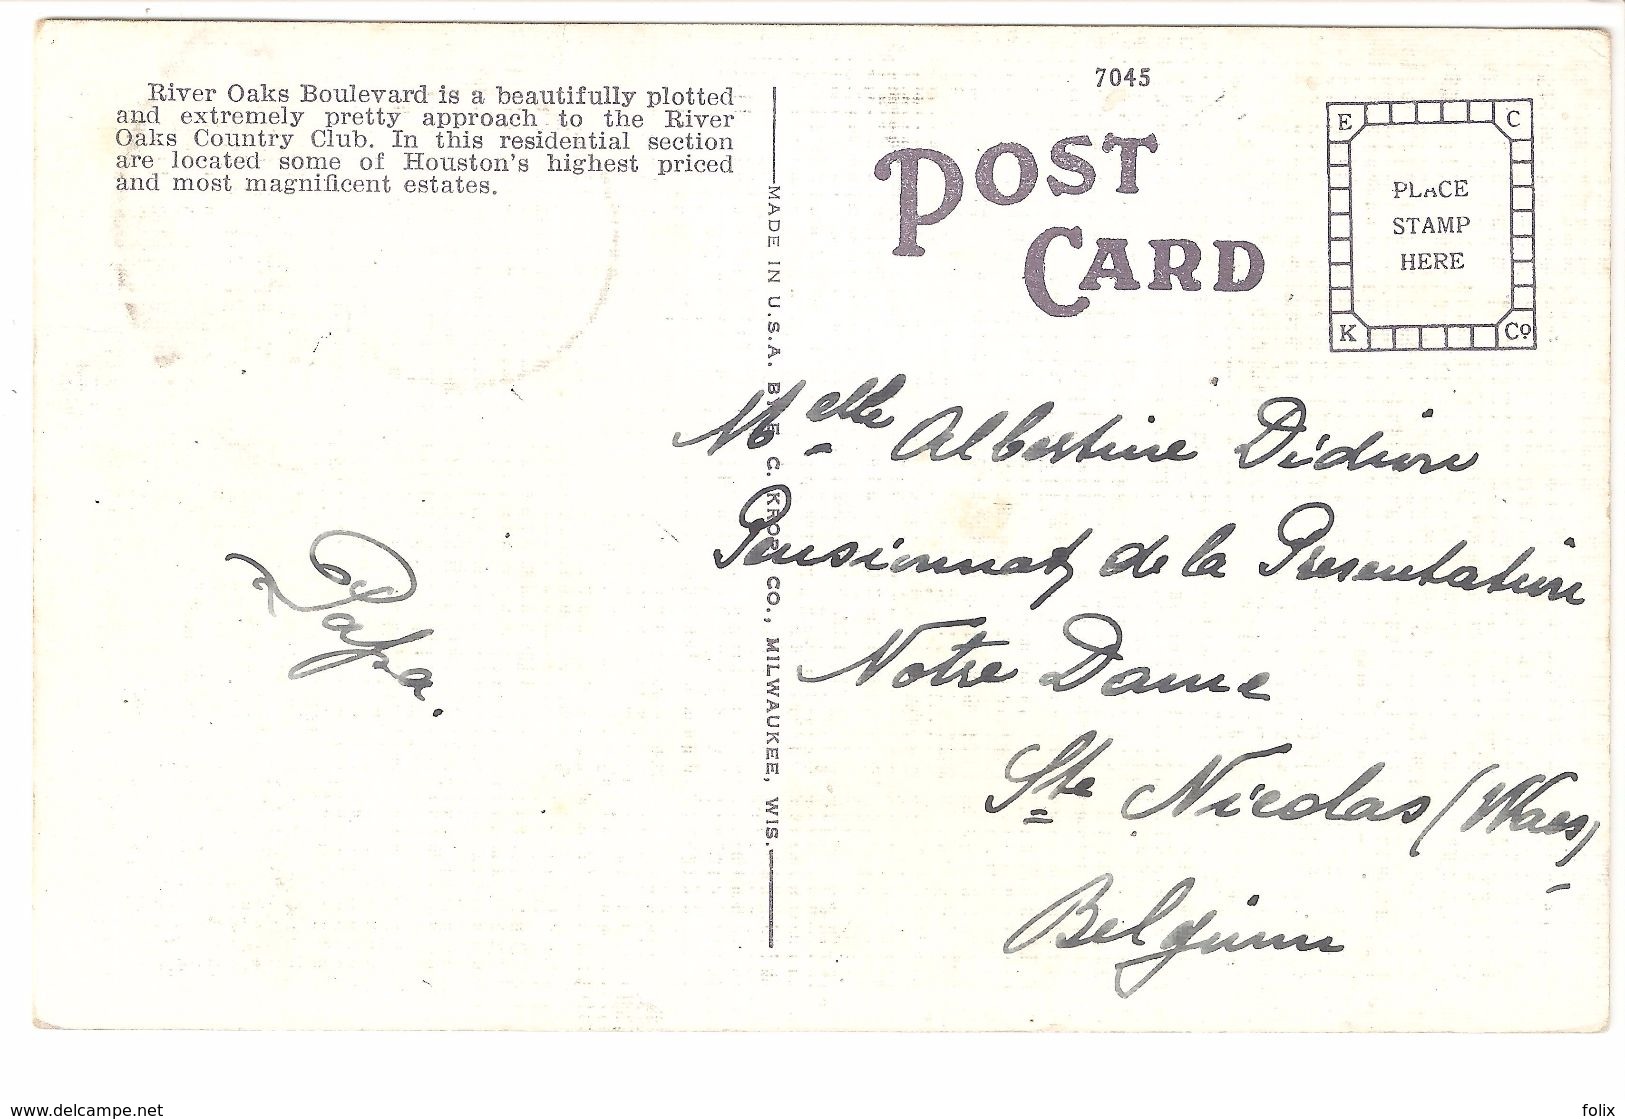 River Oaks Boulevard is a beautifully plotted
and extremely pretty approach to the River
Oaks Country Club. In this residential section
are located some of Houston's highest priced
and most magnificent estates.
7045
POST
CARD
E C
PLACE
STAMP
HERE
K Co
MADE IN U.S.A. BY E. C. KROPP CO., MILWAUKEE, WIS.
Melle Albertine Didion
Pensionnat de la Presentation
Notre Dame
Ste Nicolas (Waes)
Belgium
Papa.
www.delcampe.net
folix